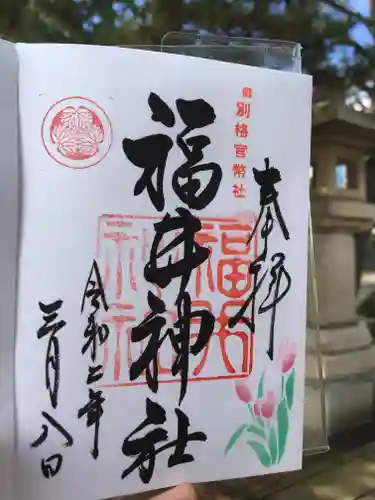 奉拝
御
別格官幣社
福井神社
福井
神社
令和二年
三月八日